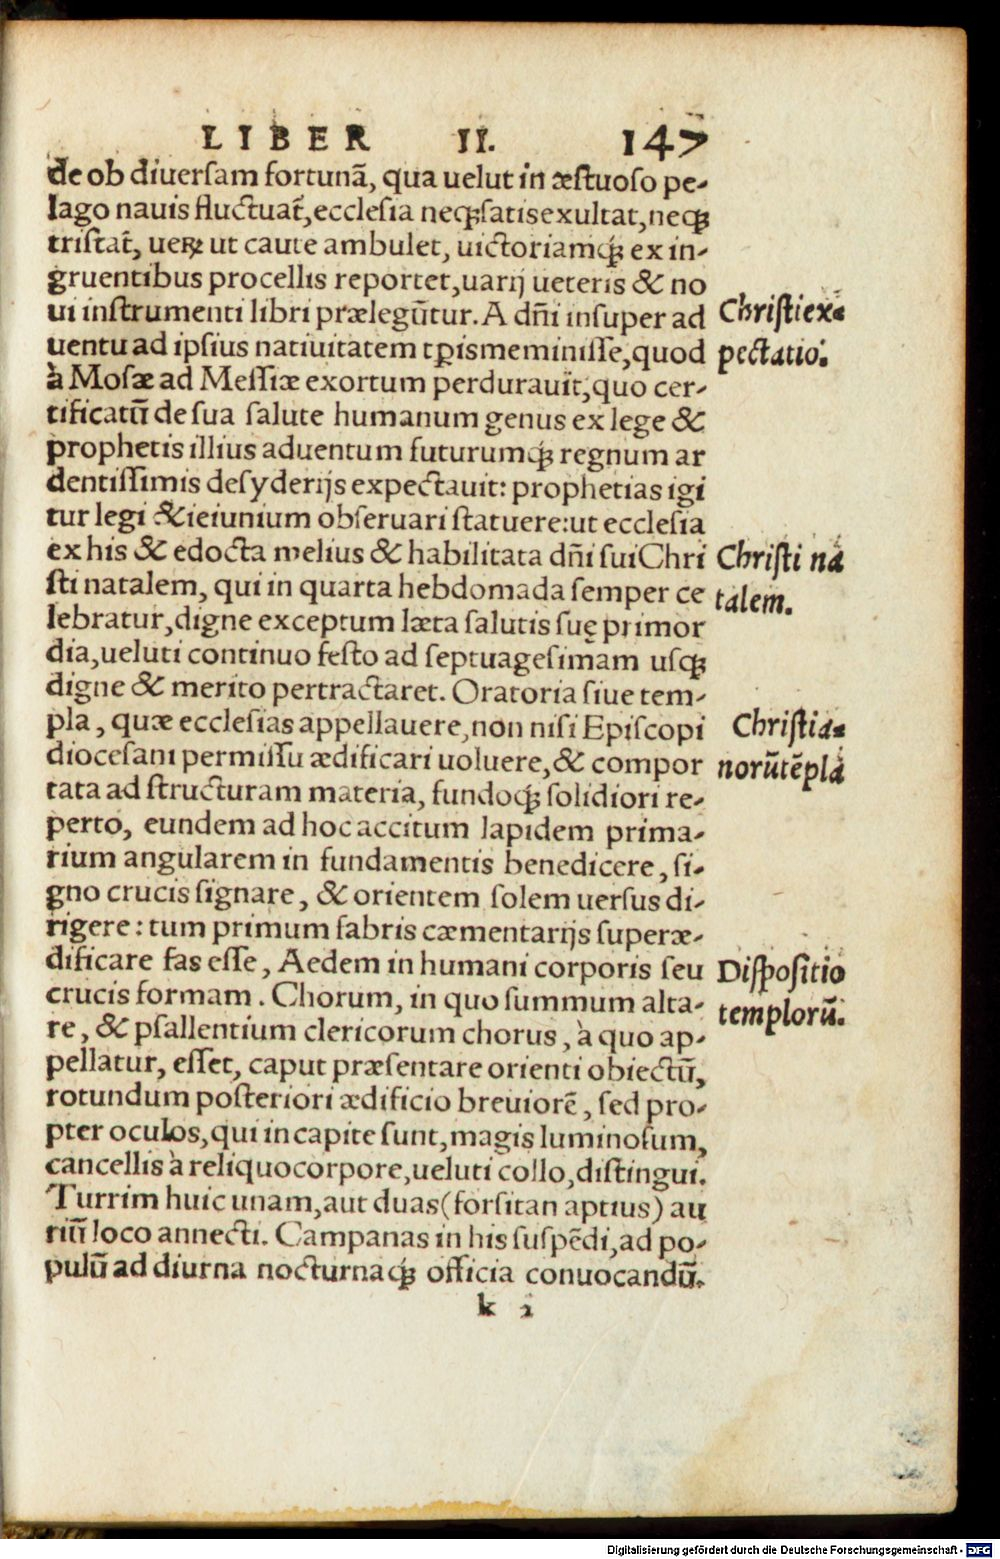 LIBER II. 147
de ob diuersam fortunã, qua uelut in æstuoso pe-
lago nauis fluctuat᷑, ecclesia neqꝫ satis exultat, neqꝫ
tristat᷑, ueꝝ ut caute ambulet, uictoriamqꝫ ex in-
gruentibus procellis reportet, uarij ueteris & no
ui instrumenti libri prælegũtur. A dñi insuper ad
uentu ad ipsius natiuitatem tꝑis meminisse, quod
à Mosæ ad Messiæ exortum perdurauit, quo cer-
tificatũ de sua salute humanum genus ex lege &
prophetis illius aduentum futurumqꝫ regnum ar
dentissimis desyderijs expectauit: prophetias igi
tur legi & ieiunium obseruari statuere: ut ecclesia
ex his & edocta melius & habilitata dñi sui Chri
sti natalem, qui in quarta hebdomada semper ce
lebratur, digne exceptum læta salutis suę primor
dia, ueluti continuo festo ad septuagesimam usqꝫ
digne & merito pertractaret. Oratoria siue tem-
pla, quæ ecclesias appellauere, non nisi Episcopi
diocesani permissu ædificari uoluere, & compor
tata ad structuram materia, fundoqꝫ solidiori re-
perto, eundem ad hoc accitum lapidem prima-
rium angularem in fundamentis benedicere, si-
gno crucis signare, & orientem solem uersus di-
rigere: tum primum fabris cæmentarijs superæ-
dificare fas esse, Aedem in humani corporis seu
crucis formam. Chorum, in quo summum alta-
re, & psallentium clericorum chorus, à quo ap-
pellatur, esset, caput præsentare orienti obiectũ,
rotundum posteriori ædificio breuiorẽ, sed pro-
pter oculos, qui in capite sunt, magis luminosum,
cancellis à reliquo corpore, ueluti collo, distingui.
Turrim huic unam, aut duas (forsitan aptius) au
riũ loco annecti. Campanas in his suspẽdi, ad po-
pulũ ad diurna nocturnaqꝫ officia conuocandũ.
k 2
Christi ex-
pectatio.
Christi na
talem.
Christia-
norũ tẽpla
Dispositio
templorũ.
Digitalisierung gefördert durch die Deutsche Forschungsgemeinschaft - DFG